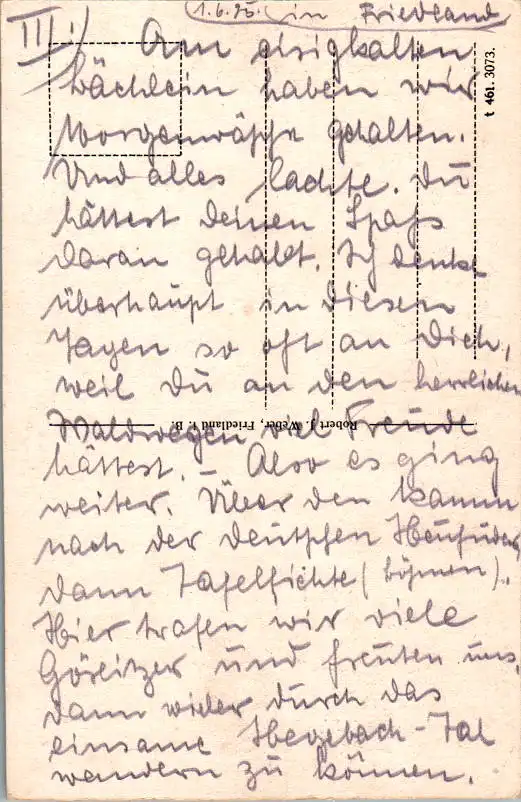 (1.6.25.) in Friedland
III.) Am eisigkalten
Bächlein haben wir
Morgenwäsche gehalten.
Und alles lachte. Du
hättest deinen Spaß
daran gehabt. Ich denke
überhaupt in diesen
Tagen so oft an Dich,
weil Du an den herrlichen
Waldwegen viel Freude
hättest. – Also es ging
weiter. Über den Kamm
nach der deutschen Heufuder
dann Tafelfichte (Böhmen).
Hier trafen wir viele
Görlitzer und freuten uns,
dann wieder durch das
einsame Hegebach-Tal
wandern zu können.
t 461. 3073.
Robert J. Weber, Friedland i. B.